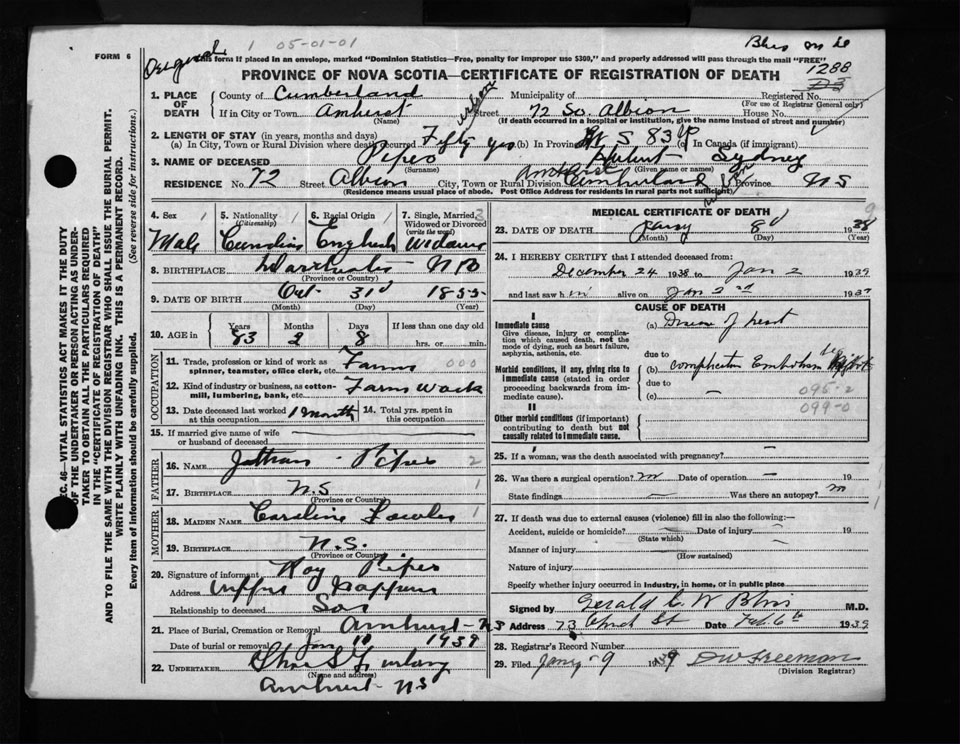 FORM 6
Original
1 05-01-01
this form if placed in an envelope, marked "Dominion Statistics—Free, penalty for improper use $300," and properly addressed will pass through the mail "FREE"
PROVINCE OF NOVA SCOTIA—CERTIFICATE OF REGISTRATION OF DEATH
1288
1. PLACE OF DEATH
County of Cumberland Municipality of Registered No.
(For use of Registrar General only)
If in City or Town Amherst Street 72 So. Albion House No.
(Name) (If death occurred in a hospital or institution, give the name instead of street and number)
2. LENGTH OF STAY (in years, months and days)
(a) In City, Town or Rural Division where death occurred Fifty yrs (b) In Province N S 83 y (c) In Canada (if immigrant)
3. NAME OF DECEASED Pipes Hubert Sydney
(Surname) (Given name or names)
RESIDENCE No. 72 Street Albion City, Town or Rural Division Amherst Cumberland Province N S
(Residence means usual place of abode. Post Office Address for residents in rural parts not sufficient)
4. Sex 1
Male
5. Nationality 1
(Citizenship)
Canadian
6. Racial Origin 1
English
7. Single, Married, 3
Widowed or Divorced
(write the word)
Widower
8. BIRTHPLACE N B
(Province or Country)
9. DATE OF BIRTH Oct 31st 1855
(Month) (Day) (Year)
10. AGE in
Years Months Days If less than one day old
83 2 8 hrs. or min.
OCCUPATION
11. Trade, profession or kind of work as
spinner, teamster, office clerk, etc. Farmer 000
12. Kind of industry or business, as cotton-
mill, lumbering, bank, etc. Farm Work
13. Date deceased last worked at this occupation 1 Month
14. Total yrs. spent in this occupation
15. If married give name of wife
or husband of deceased
FATHER
16. NAME Pipes 2
17. BIRTHPLACE N.S 1
(Province or Country)
MOTHER
18. MAIDEN NAME Caroline Fowler 1
19. BIRTHPLACE N.S.
(Province or Country)
20. Signature of informant Roy Pipes
Address Upper Nappan
Relationship to deceased Son
21. Place of Burial, Cremation or Removal Amherst - NS
Date of burial or removal Jan 10 1939
22. UNDERTAKER Chas S Furlong
(Name and address)
Amherst - NS
MEDICAL CERTIFICATE OF DEATH
23. DATE OF DEATH Jany 8th 1938
(Month) (Day) (Year)
24. I HEREBY CERTIFY that I attended deceased from:
December 24 1938 to Jan 2 1939
and last saw h im alive on Jan 2nd 1939
CAUSE OF DEATH
I
Immediate cause
Give disease, injury or complication which caused death, not the mode of dying, such as heart failure, asphyxia, asthenia, etc.
(a) of heart
due to
Morbid conditions, if any, giving rise to immediate cause (stated in order proceeding backwards from immediate cause).
(b) complication Embolism
due to 095-2
(c) 099-0
II
Other morbid conditions (if important) contributing to death but not causally related to immediate cause.
25. If a woman, was the death associated with pregnancy?
26. Was there a surgical operation? no Date of operation 19
State findings Was there an autopsy? no
27. If death was due to external causes (violence) fill in also the following:—
Accident, suicide or homicide? Date of injury 19
(State which)
Manner of injury
(How sustained)
Nature of injury
Specify whether injury occurred in industry, in home, or in public place
Signed by Gerald C. W Bliss M.D.
Address 73 Church St Date Feb. 6th 1939
28. Registrar's Record Number
29. Filed Jany - 9 1939 D W Freeman
(Division Registrar)
SEC. 46—VITAL STATISTICS ACT MAKES IT THE DUTY
OF THE UNDERTAKER OR PERSON ACTING AS UNDER-
TAKER TO OBTAIN ALL THE PARTICULARS REQUIRED
IN THE "CERTIFICATE OF REGISTRATION OF DEATH"
AND TO FILE THE SAME WITH THE DIVISION REGISTRAR WHO SHALL ISSUE THE BURIAL PERMIT.
WRITE PLAINLY WITH UNFADING INK. THIS IS A PERMANENT RECORD.
Every item of information should be carefully supplied. (See reverse side for instructions.)